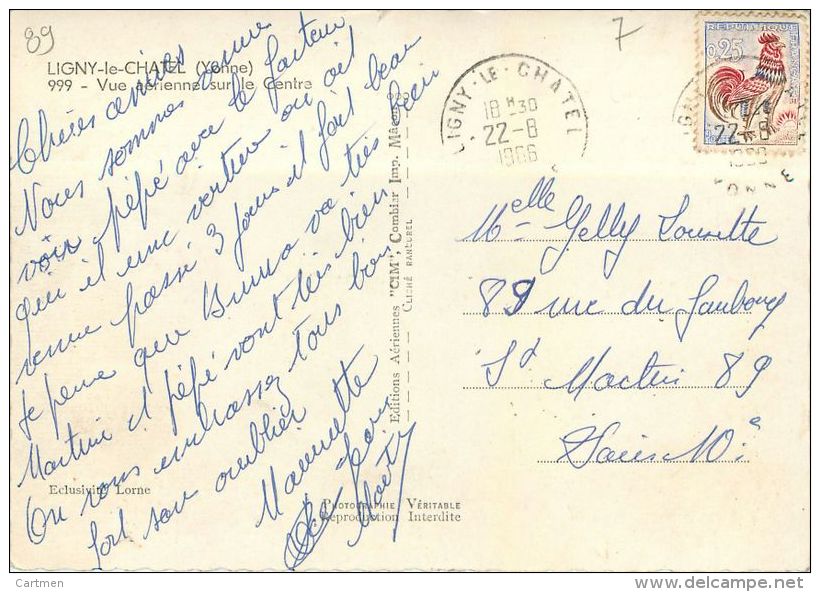 89
7
LIGNY-le-CHATEL (Yonne)
999 - Vue aérienne sur le Centre
Chères amies
Nous sommes venue
voir pépé avec le facteur
qui il une vertier au œil
venue passé 3 jours il fait beau
Je pense que Bruno va très bien
Martine et pépé vont très bien
On vous embrassez tous bien
fort son oublier
Mauricette
Eclusivité Lorne
Editions Aériennes "CIM", Combier Imp. Mâcon
CLICHÉ RANCUREL
PHOTOGRAPHIE VÉRITABLE
Reproduction Interdite
LIGNY-LE-CHATEL
18 H 30
22-8
1966
REPUBLIQUE FRANÇAISE
0,25
22-8
YONNE
Melle Gelly Lousette
89 rue du Faubourg
St Martin 89
Paris 10e
Cartmen
http://www.delcampe.net